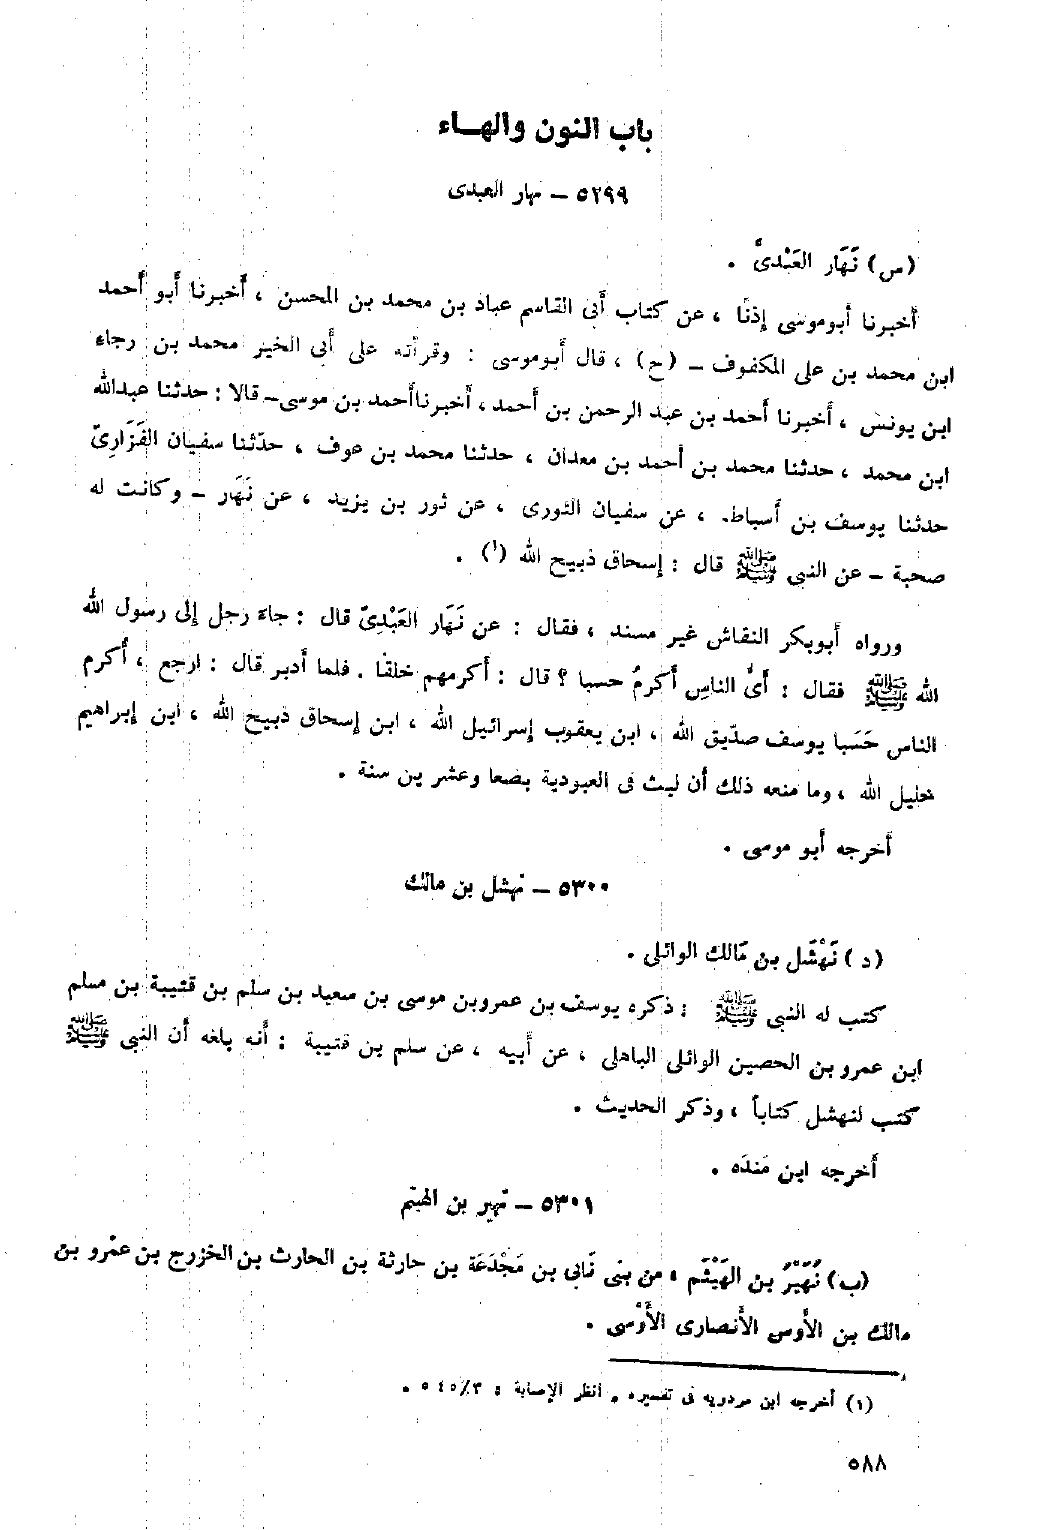 باب النون والهـاء
٥٢٩٩ – نهار العبدى
(س) نَهَار العَبْدىّ .
أخبرنا أبوموسى إذنًا ، عن كتاب أبى القاسم عباد بن محمد بن المحسن ، أخبرنا أبو أحمد
ابن محمد بن على المكفوف – (ح) ، قال أبوموسى : وقرأته على أبى الخير محمد بن رجاء
ابن يونس ، أخبرنا أحمد بن عبد الرحمن بن أحمد ، أخبرناأحمد بن موسى– قالا : حدثنا عبدالله
ابن محمد ، حدثنا محمد بن أحمد بن معدان ، حدثنا محمد بن عوف ، حدّثنا سفيان الفَزَارِىّ
حدثنا يوسف بن أسباط ، عن سفيان الثورى ، عن ثور بن يزيد ، عن نَهَار – وكانت له
صحبة – عن النبى ﷺ قال : إسحاق ذبيح الله (١) .
ورواه أبوبكر النقاش غير مسند ، فقال : عن نَهَار العَبْدِىّ قال : جاءَ رجل إلى رسول الله
الله ﷺ فقال : أىُّ الناسِ أكرمُ حسبا ؟ قال : أكرمهم خلقا . فلما أدبر قال : ارجع ، أكرم
الناس حَسَبا يوسف صدّيق الله ، ابن يعقوب إسرائيل الله ، ابن إسحاق ذبيح الله ، ابن إبراهيم
خليل الله ، وما منعه ذلك أن لبث فى العبودية بضعا وعشر ين سنة .
أخرجه أبو موسى .
٥٣٠٠ – نهشل بن مالك
(د) نَهْشَل بن مَالك الوائلى .
كتب له النبى ﷺ : ذكره يوسف بن عمروبن موسى بن سعيد بن سلم بن قتيبة بن مسلم
ابن عمرو بن الحصين الوائلى الباهلى ، عن أبيه ، عن سلم بن قتيبة : أنه بلغه أن النبى ﷺ
كتب لنهشل كتاباً ، وذكر الحديث .
أخرجه ابن مَندَه .
٥٣٠١ – نهير بن الهيثم
(ب) نُهَيْرُ بن الهَيْثَم ، من بنى نَابى بن مَجْدَعَة بن حارثة بن الحارث بن الخزرج بن عمْرو بن
مالك بن الأوس الأنصارى الأَوْسى .
(١) أخرجه ابن مردويه فى تفسيره . انظر الإصابة : ٣/٥٤٥ .
٥٨٨